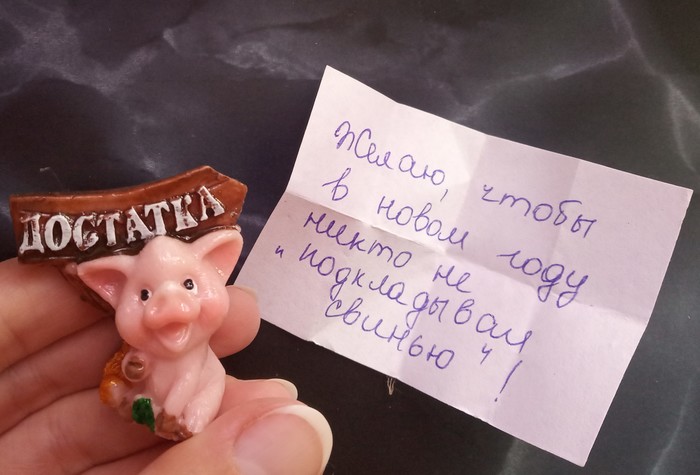 ДОСТАТКА
Желаю, чтобы
в новом году
никто не
"подкладывал
свинью"!